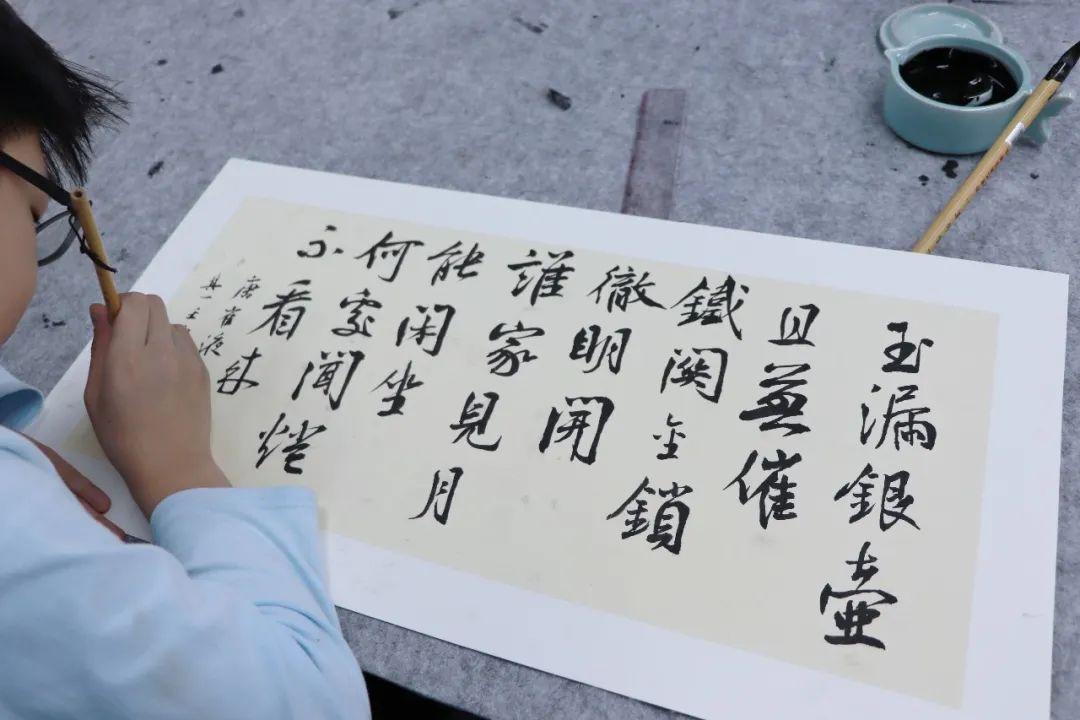 玉漏銀壺
且莫催
鐵關金鎖
徹明開
誰家見月
能閑坐
何處聞燈
不看來
唐崔液
其一